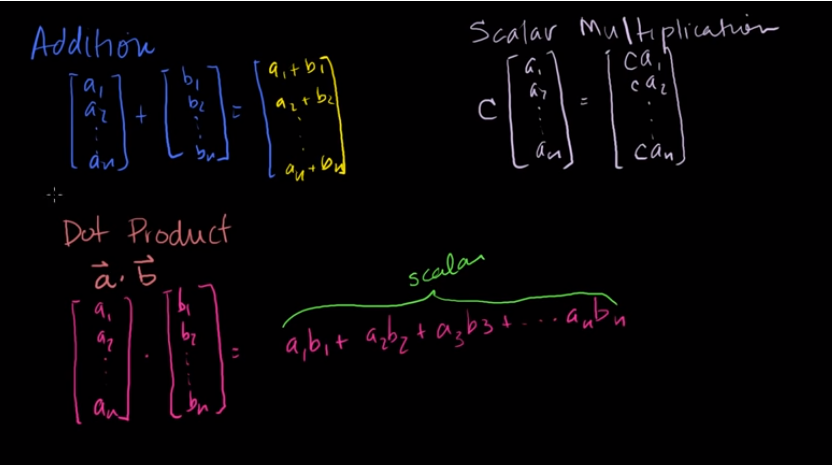 Addition
[a₁ a₂ ⋮ aₙ] + [b₁ b₂ ⋮ bₙ] = [a₁+b₁ a₂+b₂ ⋮ aₙ+bₙ]
Scalar Multiplication
c [a₁ a₂ ⋮ aₙ] = [ca₁ ca₂ ⋮ caₙ]
Dot Product
a⃗ · b⃗
scalar
[a₁ a₂ ⋮ aₙ] · [b₁ b₂ ⋮ bₙ] = a₁b₁ + a₂b₂ + a₃b₃ + ... aₙbₙ